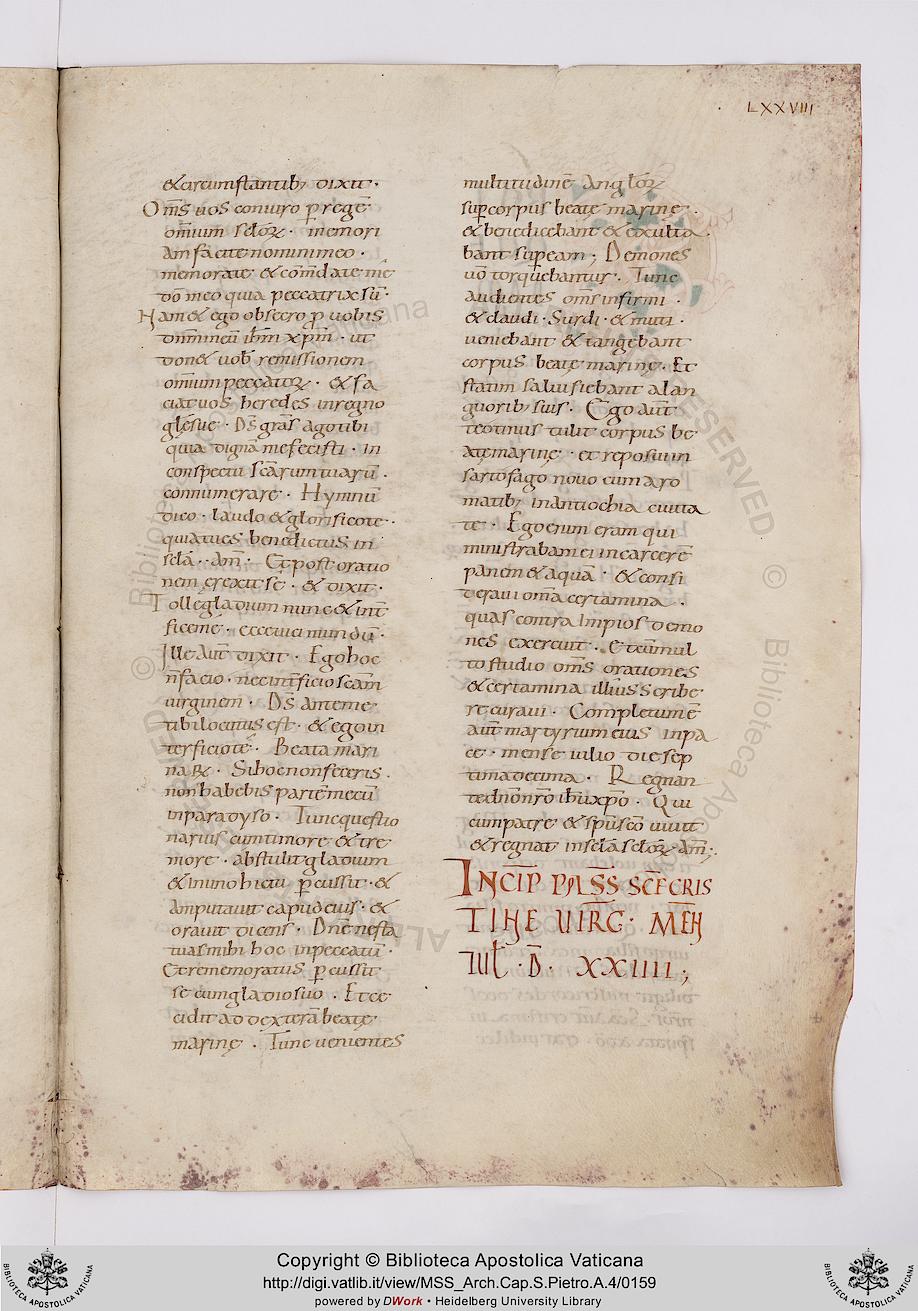 LXXVIII
& circumstantib; dixit·
Om̄s uos coniuro p̄ regē
omium sc̄lor̄· memori
am facite nomini meo·
memorate & com̄date me
dō meo quia peccatrix sū·
Nam & ego obsecro p̄ uobis
dn̄m meū ih̄m xp̄m· ut
don& uob̄ remissionem
omium peccator̄· & fa
ciat uos heredes in regno
glę suę· Ds̄ gras̄ ago tibi
quia dignā me fecisti· in
conspectu sc̄arum tuarū·
connumerare· Hymnū
dico· laudo & glorifico te·
quia tu es benedictus in
sc̄la· am̄· Et post oratio
nem erexit se· & dixit·
Tolle gladium nunc & int̄
fice me· ecce uici mundū·
Ille aut̄ dixit· Ego hoc
n̄ facio· nec int̄ficio sc̄am
uirginem· Ds̄ ante me
tibi locutus est· & ego in
terficio te· Beata mari
na R̄· Si hoc non feceris·
non habebis partē mecū
in paradyso· Tunc questio
narius cum timore & tre
more· abstulit gladium
& in uno hictu p̄cussit· &
amputauit capud eius· &
orauit dicens· Dn̄e ne sta
tuas mihi hoc in peccatū·
Et rememoratus p̄cussit
se cum gladio suo· Et ce
cidit ad dexterā beate
marinę· Tunc uenientes
multitudinē anglor̄
sup̄ corpus beate marinę·
& benedicebant & exulta
bant sup̄ eam; Demones
uō torquebantur· Tunc
audientes om̄s infirmi·
& claudi· Surdi· & muti·
ueniebant & tangebant
corpus beatę marinę· Et
statim salui fiebant a lan
guorib; suis· Ego aut̄
teotinus tulit corpus be
atę marinę· et reposui in
sartofago nouo cum aro
matib; in antiochia ciuita
te· Ego enim eram qui
ministrabam ei in carcerē
panem & aquā· & consi
deraui om̄a certamina·
quas contra impios demo
nes exercuit· Et cū mul
to studio om̄s orationes
& certamina illius scribe
re curaui· Completum ē
aut̄ martyrium eius in pa
ce· mense iulio die sep
tima decima· Regnan
te dn̄o nr̄o ih̄u xp̄o· Qui
cum patre & sp̄u sc̄o uiuit
& regnat in sc̄la sc̄lor̄· am̄;
INCIP̄ PASS̄ SC̄E CRIS
TINE UIRG· MEN̄
IUL̄ · D̄· XXIIII;
Copyright © Biblioteca Apostolica Vaticana
http://digi.vatlib.it/view/MSS_Arch.Cap.S.Pietro.A.4/0159
powered by DWork • Heidelberg University Library